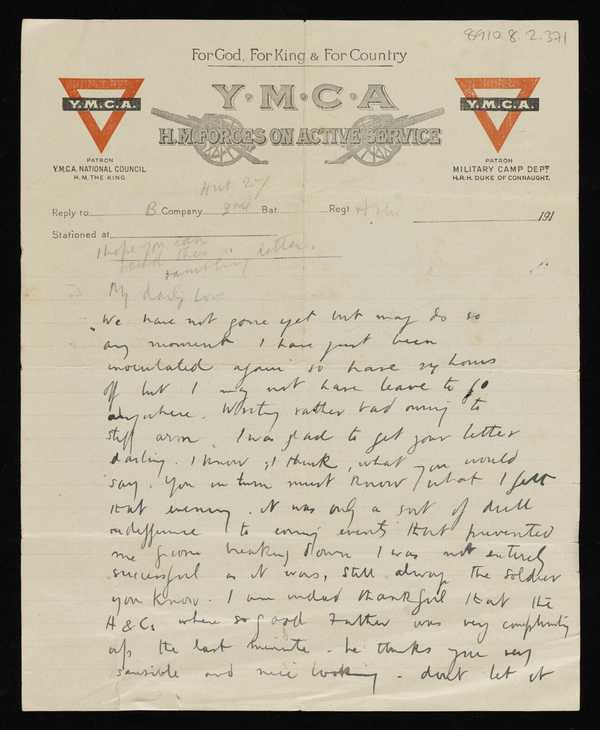 8910.8.2.371
For God, For King & For Country
Y·M·C·A
H.M. FORCES ON ACTIVE SERVICE
Y.M.C.A.
Y.M.C.A.
PATRON
Y.M.C.A. NATIONAL COUNCIL
H.M. THE KING
PATRON
MILITARY CAMP DEPT
H.R.H. DUKE OF CONNAUGHT.
Hut 27
Reply to B Company Bat. Regt 191
Stationed at
I hope you can
read this
rambling letter.
My darling Love
We have not gone yet but may do so
any moment I have just been
inoculated again so have 24 hours
off but I may not have leave to go
anywhere. Writing rather bad owing to
stiff arm. I was glad to get your letter
darling. I know, I think, what you would
say. You in turn must know what I felt
that evening. It was only a sort of dull
indifference to coming events that prevented
me from breaking down I was not entirely
successful as it was, still always the soldier
you know. I am indeed thankful that the
A & Cs where so good Father was very complimentary
at the last minute. he thinks you very
sensible and nice looking. don't let it